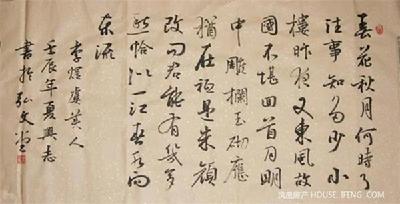 春花秋月何時了
往事知多少小
樓昨夜又東風故
國不堪回首月明
中雕欄玉砌應
猶在祗是朱顏
改問君能有幾多
愁恰似一江春水向
東流
李煜虞美人
壬辰年夏興志
書於弘文堂
凤凰房产 HOUSE.IFENG.COM